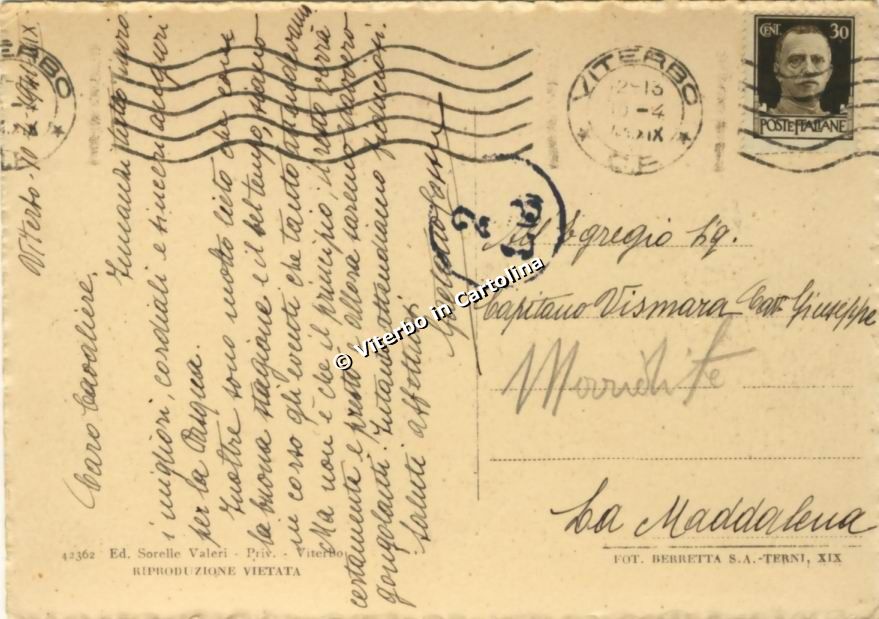 Viterbo - 10-4-941 XIX
Caro Cavaliere,
i migliori, cordiali e sinceri auguri
per la Pasqua.
Inoltre sono molto lieto che con
la buona stagione e il bel tempo, siano
in corso gli eventi che tanto attendevamo
Ma non è che il principio, il resto verrà
certamente e presto e allora saremo davvero
gongolanti. Intanto attendiamo fiduciosi.
Saluti affettuosi
VITERBO
12-13
10-4
XIX
C.P.
CENT. 30
POSTE ITALIANE
2
All'Egregio Sig.
Capitano Vismara Cav. Giuseppe
La Maddalena
© Viterbo in Cartolina
42362 Ed. Sorelle Valeri - Priv. - Viterbo
RIPRODUZIONE VIETATA
FOT. BERRETTA S.A.-TERNI, XIX